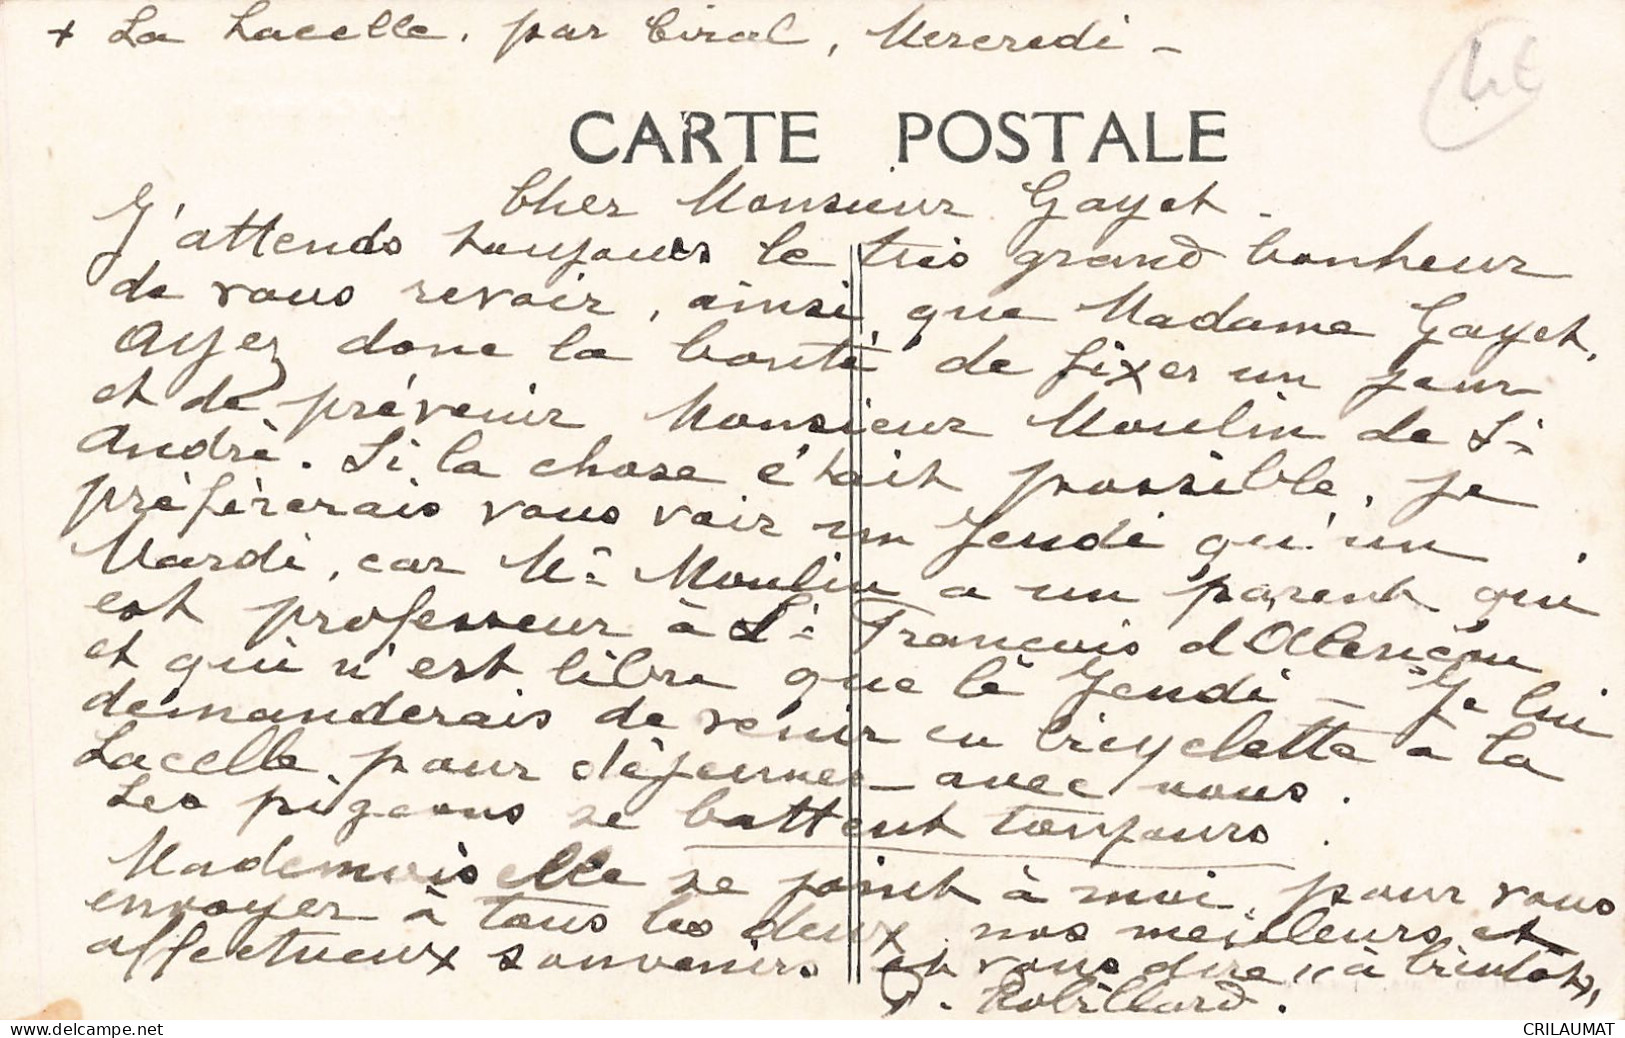 + La Lacelle, par Ciral, Mercredi -
4€
CARTE POSTALE
Cher Monsieur Gayet -
J'attends toujours le très grand bonheur
de vous revoir, ainsi que Madame Gayet,
Ayez donc la bonté de fixer un jour
et de prévenir Monsieur Moulin de St
André. Si la chose était possible, je
préfèrerais vous voir un Jeudi qu'un
Mardi, car Mr Moulin a un parent qui
est professeur à St François d'Alençon
et qui n'est libre que le Jeudi - Je lui
demanderais de venir en bicyclette à la
Lacelle, pour déjeuner avec nous.
Les pigeons se battent toujours.
Mademoiselle se joint à moi, pour vous
envoyer à tous les deux, nos meilleurs et
affectueux souvenirs et vous dire "à bientôt"
Robillard.
CRILAUMAT